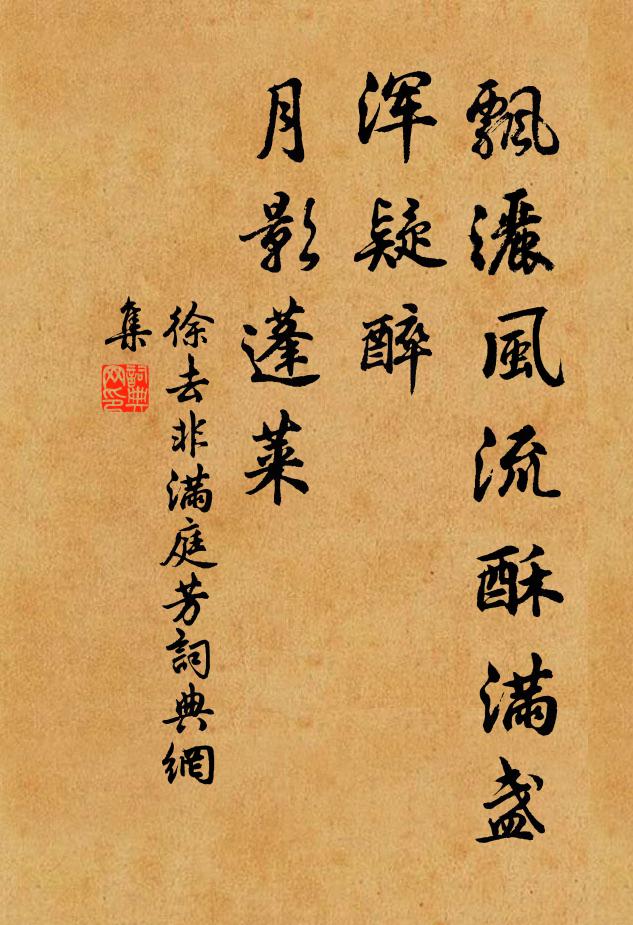 飄灑風流酥滿盞
渾疑醉
月影蓬萊
徐去非滿庭芳詞典網
集
詞典網印